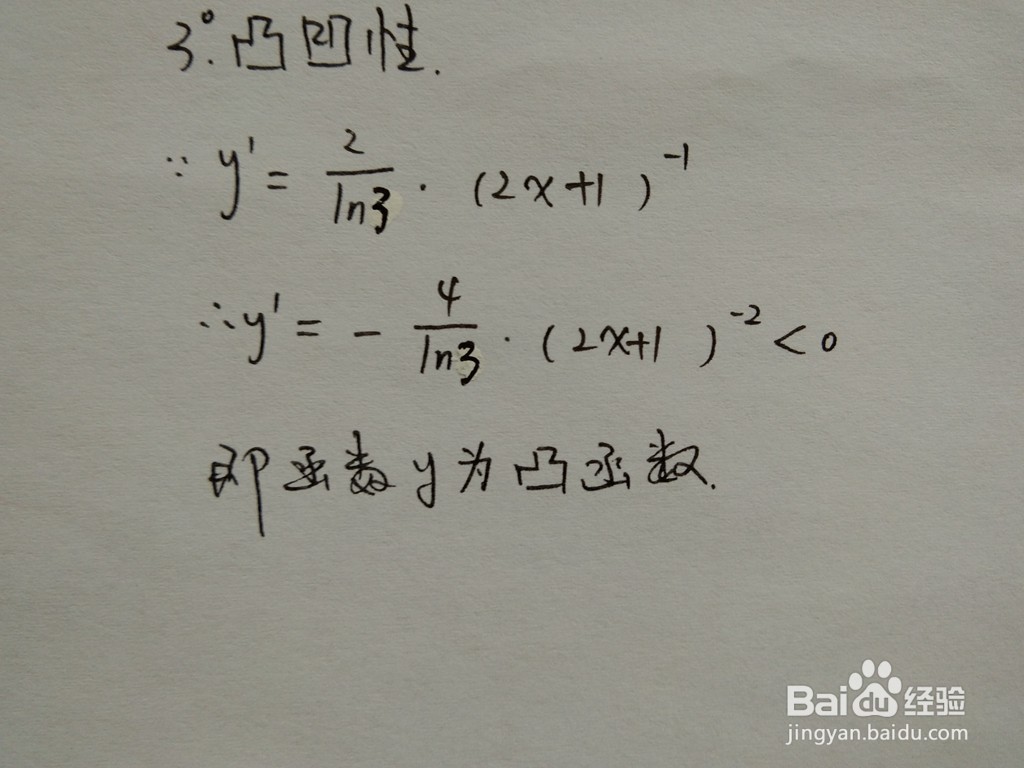 3°.凸凹性.
∵ y' = 2/ln3 · (2x+1)^-1
∴ y' = - 4/ln3 · (2x+1)^-2 < 0
即函数y为凸函数.
Baidu经验
jingyan.baidu.com